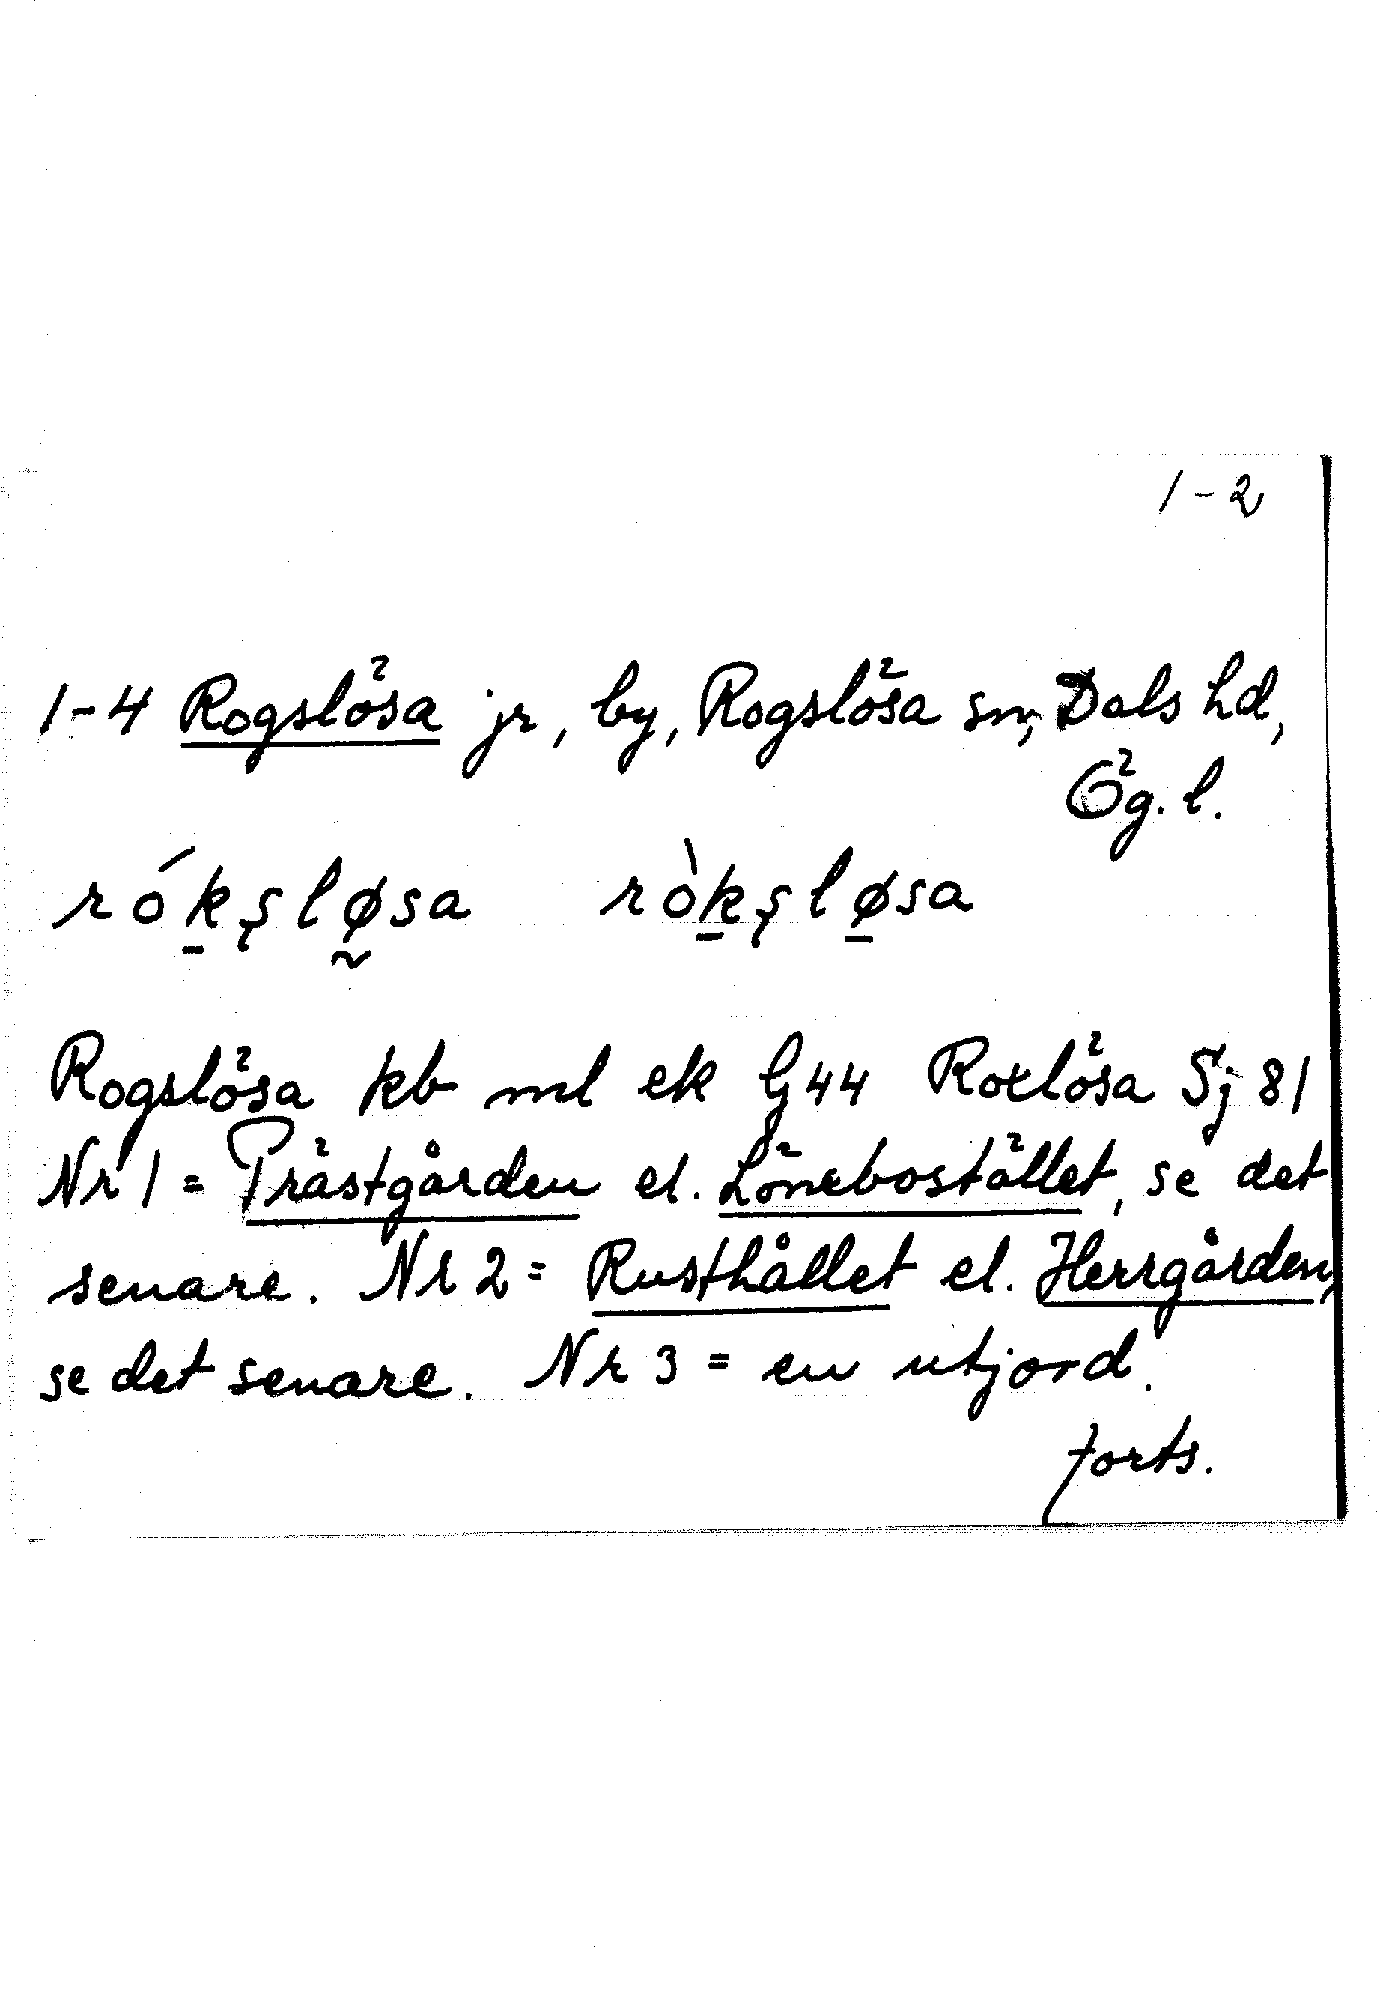 1-2
1-4 Rogslösa jr, by, Rogslösa sn, Dals hd,
Ög. l.
rókşløsa ròkşløsa
Rogslösa kb ml ek G44 Roxlösa Sj 81
Nr 1 = Prästgården el. Lönebostället, se det
senare. Nr 2 = Rusthållet el. Herrgården,
se det senare. Nr 3 = en utjord.
forts.